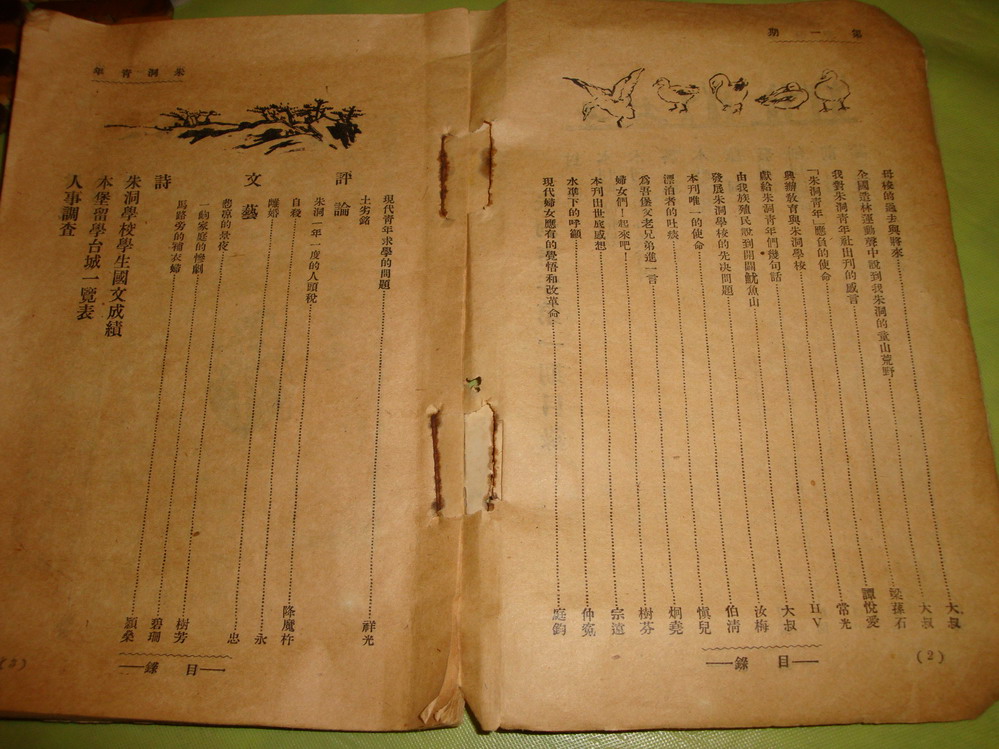 第一期
母校的過去與將來……大叔
全國造林運動聲中說到我朱洞的童山荒野……大叔
我對朱洞青年社出刊的感言……梁孫石
「朱洞青年」應負的使命……譚悅愛
興辦教育與朱洞學校……常光
獻給朱洞青年們幾句話……HV
由我族殖民說到開闢魷魚山……大叔
發展朱洞學校的先决問題……汝梅
本刊唯一的使命……伯清
漂泊者的吐痰……慎兒
為吾堡父老兄弟進一言……炯堯
婦女們!起來吧!……樹芬
本刊出世底感想……宗遠
水準下的呼籲……仲寃
現代婦女應有的覺悟和改革命……庭鈞
目錄
(2)
朱洞青年
現代青年求學的問題……祥光
評論
土劣銘
朱洞一年一度的人頭稅……降魔杵
自殺……永
文藝
離婚……忠
悲凉的景夜……樹芳
一齣家庭的慘劇……碧珊
詩
馬路旁的補衣婦……顯燊
朱洞學校學生國文成績
本堡留學台城一覽表
人事調查
目錄
(3)